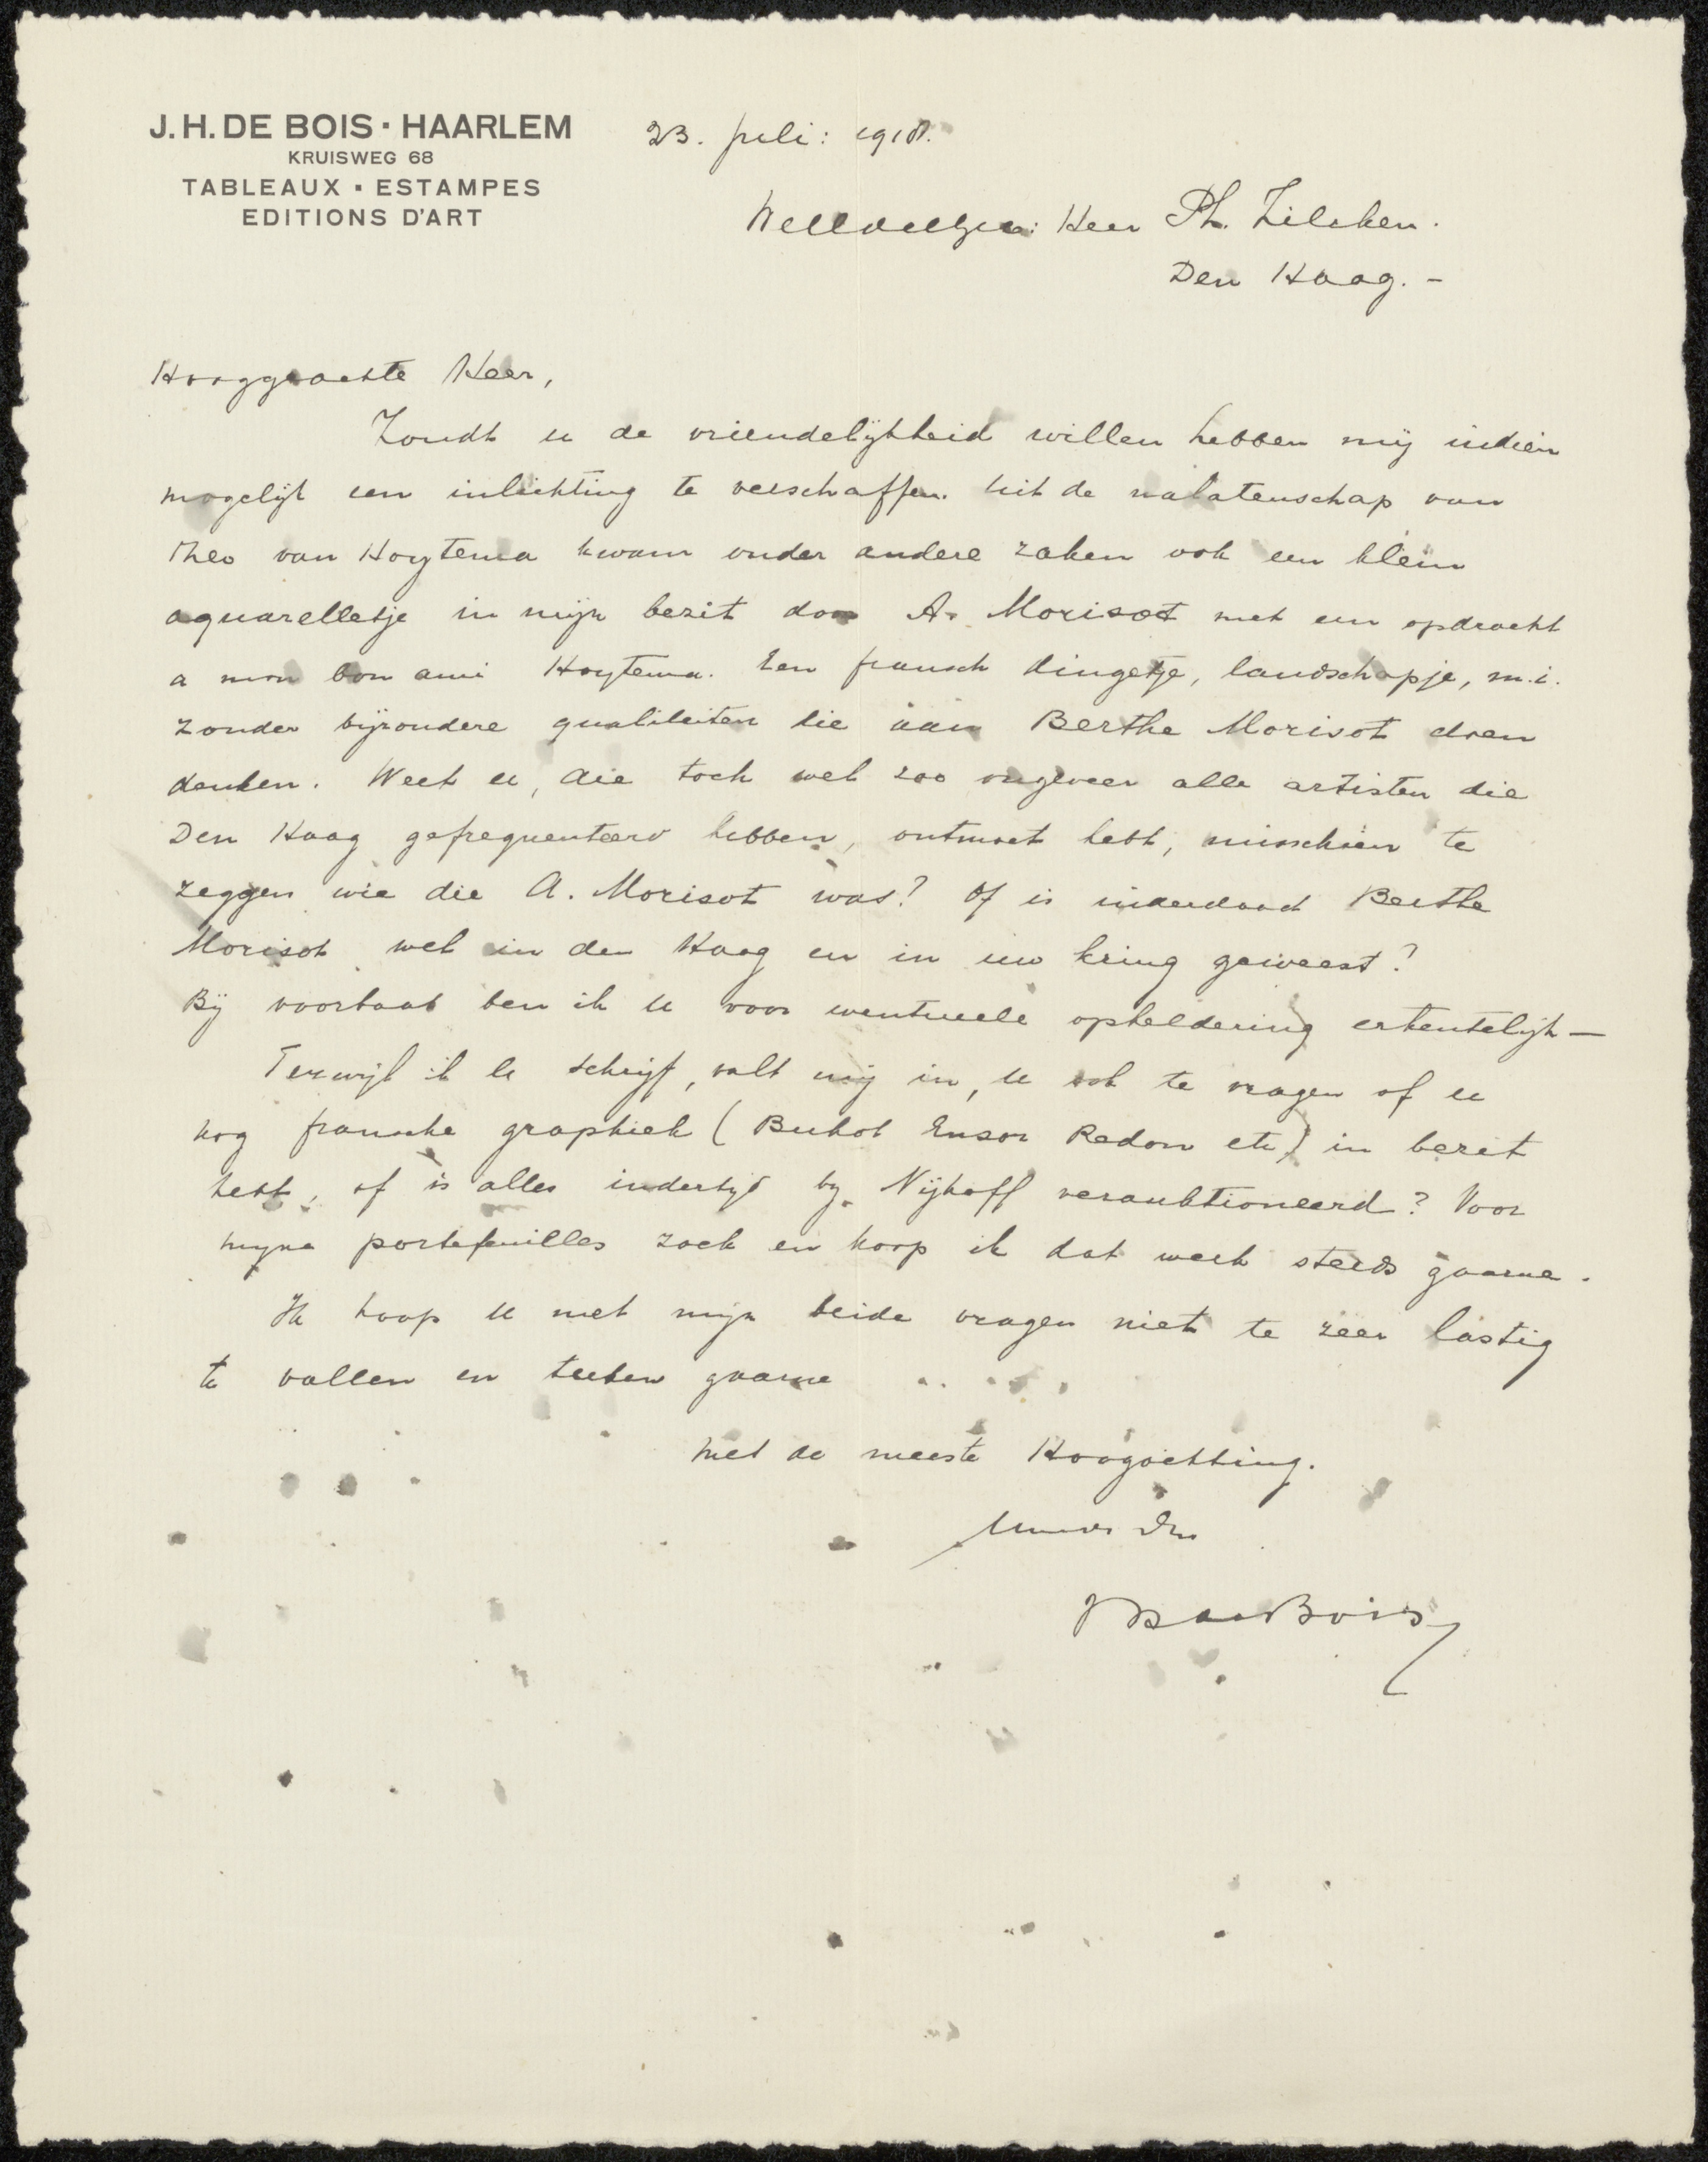 J. H. DE BOIS · HAARLEM
KRUISWEG 68
TABLEAUX · ESTAMPES
EDITIONS D'ART
23. Juli: 1918.
Heer Ph. Zilcken.
Den Haag. -
Hooggeachte Heer,
Zoudt u de vriendelijkheid willen hebben mij indien
mogelijk een inlichting te verschaffen. Uit de nalatenschap van
Theo van Hoytema kwam onder andere zaken ook een klein
aquarelletje in mijn bezit door A. Morisot met een opdracht
a mon bon ami Hoytema. Een fransch dingetje, landschapje, m.i.
zonder bijzondere qualiteiten die aan Berthe Morisot doen
denken. Weet u, die toch wel zoo ongeveer alle artisten die
Den Haag gefrequenteerd hebben, ontmoet hebt, misschien te
zeggen wie die A. Morisot was? Of is inderdaad Berthe
Morisot wel in den Haag en in uw kring geweest?
Bij voorbaat ben ik u voor eventueele opheldering erkentelijk —
Terwijl ik u schrijf, valt mij in, u ook te vragen of u
nog fransche graphiek (Buhot Ensor Redon etc) in bezit
hebt, of is alles indertijd by Nijhoff verauktioneerd? Voor
myne portefeuilles zoek en koop ik dat werk steeds gaarne.
Ik hoop u met mijn beide vragen niet te zeer lastig
te vallen en teeken gaarne
met de meeste Hoogachting.
Uwe dr
JHdeBois